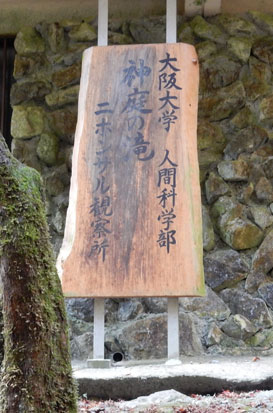 大阪大学 人間科学部
神庭の滝
ニホンザル観察所